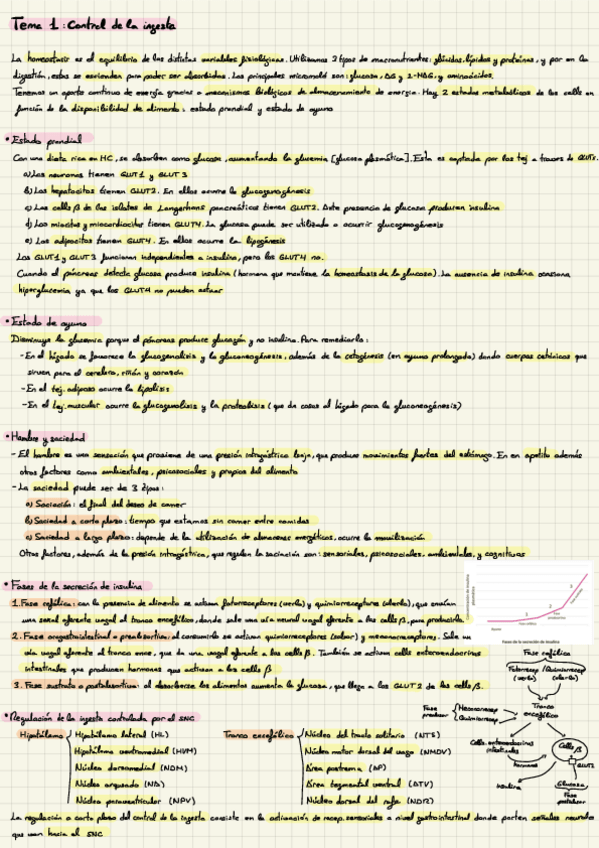 Tema 1: Control de la ingesta
La homeostasis es el equilibrio de las distintas variables fisiológicas. Utilizamos 3 tipos de macronutrientes: glúcidos, lípidos y proteínas, y por en la
digestión, estos se escinden para poder ser absorbidos. Las principales son: glucosa, AG y 2-MAG, y aminoácidos.
Tenemos un aporte continuo de energía gracias a mecanismos biológicos de almacenamiento de energía. Hay 2 estados metabólicos de las cells en
función de la disponibilidad de alimento: estado prandial y estado de ayuno
• Estado prandial
Con una dieta rica en HC, se absorben como glucosa, aumentando la glucemia [glucosa plasmática]. Esta es captada por los tej a través de GLUTs.
a) Las neuronas tienen GLUT1 y GLUT3
b) Los hepatocitos tienen GLUT2. En ellos ocurre la glucogenogénesis
c) Las cells β de los islotes de Langerhans pancreáticos tienen GLUT2. Ante presencia de glucosa producen insulina
d) Los miocitos y miocardiocitos tienen GLUT4. La glucosa puede ser utilizada o ocurrir glucogenogénesis
e) Los adipocitos tienen GLUT4. En ellos ocurre la lipogénesis
Los GLUT1 y GLUT3 funcionan independientes a insulina, pero los GLUT4 no.
Cuando el páncreas detecta glucosa produce insulina (hormona que mantiene la homeostasis de la glucosa). La ausencia de insulina ocasiona
hiperglucemia ya que los GLUT4 no pueden actuar
• Estado de ayuno
Disminuye la glucemia porque el páncreas produce glucagón y no insulina. Para remediarlo:
- En el hígado se favorece la glucogenolisis y la gluconeogénesis, además de la cetogénesis (en ayuno prolongado) dando cuerpos cetónicos que
sirven para el cerebro, riñón y corazón
- En el tej. adiposo ocurre la lipólisis
- En el tej. muscular ocurre la glucogenolisis y la proteolisis (que da cosas al hígado para la gluconeogénesis)
• Hambre y saciedad
- El hambre es una sensación que proviene de una presión intragástrica baja, que produce movimientos fuertes del estómago. En en apetito además
otros factores como ambientales, psicosociales y propios del alimento
- La saciedad puede ser de 3 tipos:
a) Saciación: el final del deseo de comer
b) Saciedad a corto plazo: tiempo que estamos sin comer entre comidas
c) Saciedad a largo plazo: depende de la utilización de almacenes energéticos, ocurre la movilización
Otros factores, además de la presión intragástrica, que regulan la saciación son: sensoriales, psicosociales, ambientales, y cognitivos
• Fases de la secreción de insulina
1. Fase cefálica: con la presencia de alimento se activan fotorreceptores (verlo) y quimiorreceptores (olerlo), que envían
una señal aferente vagal al tronco encefálico, donde sale una vía neural vagal eferente a las cells β, para producirla
2. Fase orogastrointestinal o preabsortiva: al consumirlo se activan quimiorreceptores (sabor) y mecanorreceptores. Sale un
vía vagal aferente al tronco ence, que da una vagal eferente a las cells β. También se activan cells enteroendocrinas
intestinales que producen hormonas que activan a las cells β
3. Fase sustrato o postabsortiva: al absorberse los alimentos aumenta la glucosa, que llega a los GLUT2 de las cells β.
Fases de la secreción de insulina
Fase cefálica
Fotorrecep / Quimiorrecep
(verlo) (olerlo)
Fase
Mecanorrecep
Quimiorrecep
Tronco
encefálico
Cells. enteroendocrinas
intestinales
hormonas
Cells β
GLUT2
insulina
Glucosa
Fase
postabsor
• Regulación de la ingesta controlada por el SNC
Hipotálamo
Hipotálamo lateral (HL)
Hipotálamo ventromedial (HVM)
Núcleo dorsomedial (NDM)
Núcleo arqueado (NA)
Núcleo paraventricular (NPV)
Tronco encefálico
Núcleo del tracto solitario (NTS)
Núcleo motor dorsal del vago (NMDV)
Área postrema (AP)
Área tegmental ventral (ATV)
Núcleo dorsal del rafe (NDR)
La regulación a corto plazo del control de la ingesta consiste en la activación de recep. sensoriales a nivel gastrointestinal donde parten señales neurales
que van hacia el SNC